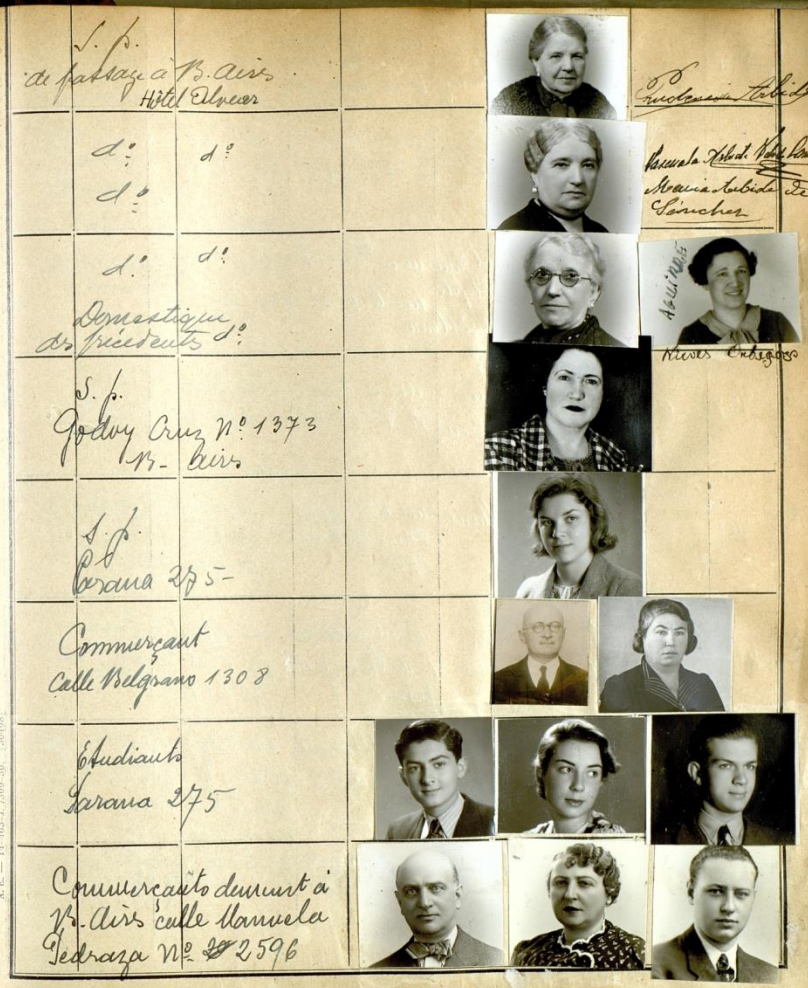 S. p.
de passage à B. Aires
Hôtel Alvear
Prudencia Arbide
d.º d.º
d.º
Pascuala Arbide
Maria Arbide de
Sánchez
d.º d.º
Domestique
des précédents d.º
Nieves
S. p.
Godoy Cruz Nº 1373
B- Aires
S. p.
Parana 275-
Commerçant
Calle Belgrano 1308
Etudiants
Parana 275
Commerçants demeurant à
B. Aires calle Manuela
Pedraza Nº 2596